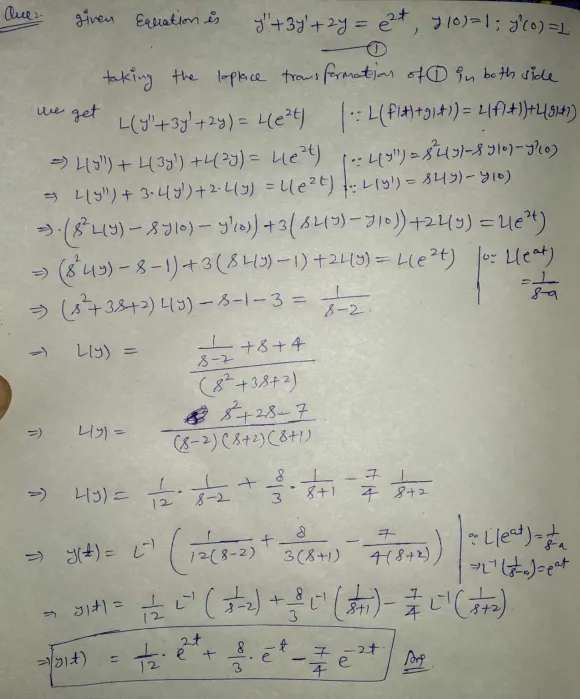 Que:- given Equation is y''+3y'+2y = e^{2t}, y(0)=1; y'(0)=1
①
taking the laplace transformation of ① in both side
we get L(y''+3y'+2y) = L(e^{2t}) | ∵ L(f(t)+g(t)) = L(f(t))+L(g(t))
⇒ L(y'') + L(3y') + L(2y) = L(e^{2t}) | ∵ L(y'') = s²L(y)-sy(0)-y'(0)
⇒ L(y'') + 3·L(y') + 2·L(y) = L(e^{2t}) | ∵ L(y') = sL(y)-y(0)
⇒ (s²L(y) - sy(0) - y'(0)) + 3(sL(y) - y(0)) + 2L(y) = L(e^{2t})
⇒ (s²L(y) - s - 1) + 3(sL(y) - 1) + 2L(y) = L(e^{2t}) | ∵ L(e^{at}) = 1/(s-a)
⇒ (s²+3s+2) L(y) - s - 1 - 3 = 1/(s-2).
⇒ L(y) = (1/(s-2) + s + 4)/(s²+3s+2)
⇒ L(y) = (s²+2s-7)/((s-2)(s+2)(s+1))
⇒ L(y) = 1/12 · 1/(s-2) + 8/3 · 1/(s+1) - 7/4 1/(s+2)
⇒ y(t) = L⁻¹(1/(12(s-2)) + 8/(3(s+1)) - 7/(4(s+2))) | ∵ L(e^{at}) = 1/(s-a)
⇒ L⁻¹(1/(s-a)) = e^{at}
⇒ y(t) = 1/12 L⁻¹(1/(s-2)) + 8/3 L⁻¹(1/(s+1)) - 7/4 L⁻¹(1/(s+2)).
⇒ y(t) = 1/12 · e^{2t} + 8/3 · e^{-t} - 7/4 e^{-2t} Ans